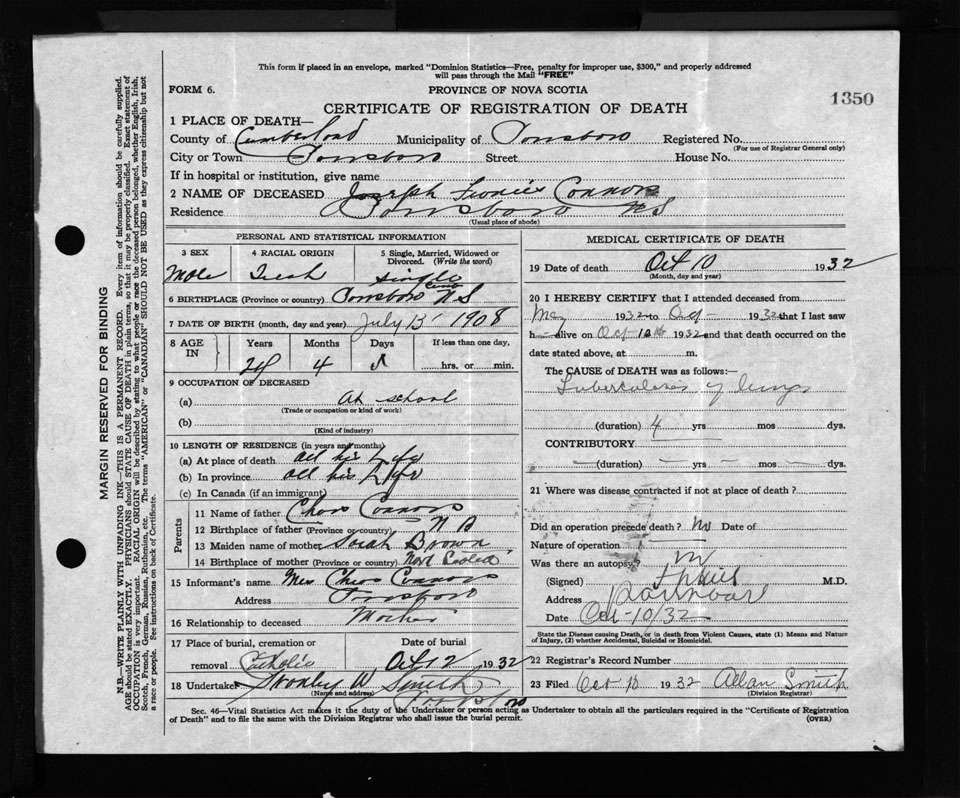 This form if placed in an envelope, marked "Dominion Statistics—Free, penalty for improper use, $300," and properly addressed
will pass through the Mail "FREE"
FORM 6. PROVINCE OF NOVA SCOTIA
CERTIFICATE OF REGISTRATION OF DEATH 1350
1 PLACE OF DEATH—
County of Cumberland Municipality of Parrsboro Registered No.
(For use of Registrar General only)
City or Town Parrsboro Street House No.
If in hospital or institution, give name
2 NAME OF DECEASED Joseph Connors
Residence Parrsboro NS
(Usual place of abode)
PERSONAL AND STATISTICAL INFORMATION
3 SEX 4 RACIAL ORIGIN 5 Single, Married, Widowed or
Divorced. (Write the word)
Male Irish Single
6 BIRTHPLACE (Province or country) Parrsboro Cumb NS
7 DATE OF BIRTH (month, day and year) July 13 1908
8 AGE IN Years Months Days If less than one day,
24 4 hrs. or min.
9 OCCUPATION OF DECEASED
(a) At school
(Trade or occupation or kind of work)
(b)
(Kind of industry)
10 LENGTH OF RESIDENCE (in years and months)
(a) At place of death all his Life
(b) In province all his Life
(c) In Canada (if an immigrant)
Parents
11 Name of father Chas Connors
12 Birthplace of father (Province or country) N B
13 Maiden name of mother Sarah Brown
14 Birthplace of mother (Province or country) Nova Scotia
15 Informant's name Mrs Chas Connors
Address Parrsboro
16 Relationship to deceased Mother
17 Place of burial, cremation or Date of burial
removal Catholic Oct 12 1932
18 Undertaker W Smith
(Name and address)
MEDICAL CERTIFICATE OF DEATH
19 Date of death Oct 10 1932
(Month, day and year)
20 I HEREBY CERTIFY that I attended deceased from
May 1932 to Oct 1932 that I last saw
h alive on Oct 10th 1932 and that death occurred on the
date stated above, at m.
The CAUSE of DEATH was as follows:—
Tuberculosis of lungs
(duration) 4 yrs mos dys.
CONTRIBUTORY
(duration) yrs mos dys.
21 Where was disease contracted if not at place of death?
Did an operation precede death? no Date of
Nature of operation
Was there an autopsy?
(Signed) M.D.
Address Parrsboro
Date Oct-10/32
State the Disease causing Death, or in death from Violent Causes, state (1) Means and Nature
of Injury, (2) whether Accidental, Suicidal or Homicidal.
22 Registrar's Record Number
23 Filed Oct 10 1932 Allan Smith
(Division Registrar)
Sec. 46—Vital Statistics Act makes it the duty of the Undertaker or person acting as Undertaker to obtain all the particulars required in the "Certificate of Registration
of Death" and to file the same with the Division Registrar who shall issue the burial permit. (OVER)
MARGIN RESERVED FOR BINDING
N.B.—WRITE PLAINLY WITH UNFADING INK—THIS IS A PERMANENT RECORD. Every item of information should be carefully supplied.
AGE should be stated EXACTLY. PHYSICIANS should STATE CAUSE OF DEATH in plain terms, so that it may be properly classified. Exact statement of
OCCUPATION is very important. RACIAL ORIGIN will be described by stating to what people or race the deceased person belonged, whether English, Irish,
Scotch, French, German, Russian, Ruthenian, etc. The terms "AMERICAN" or "CANADIAN" SHOULD NOT BE USED as they express citizenship but not
a race or people. See instructions on back of Certificate.